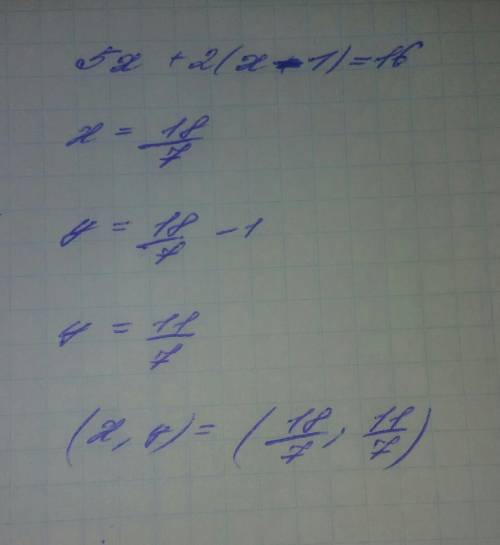 5x + 2(x - 1) = 16
x = 18/7
y = 18/7 - 1
y = 11/7
(x, y) = (18/7; 11/7)